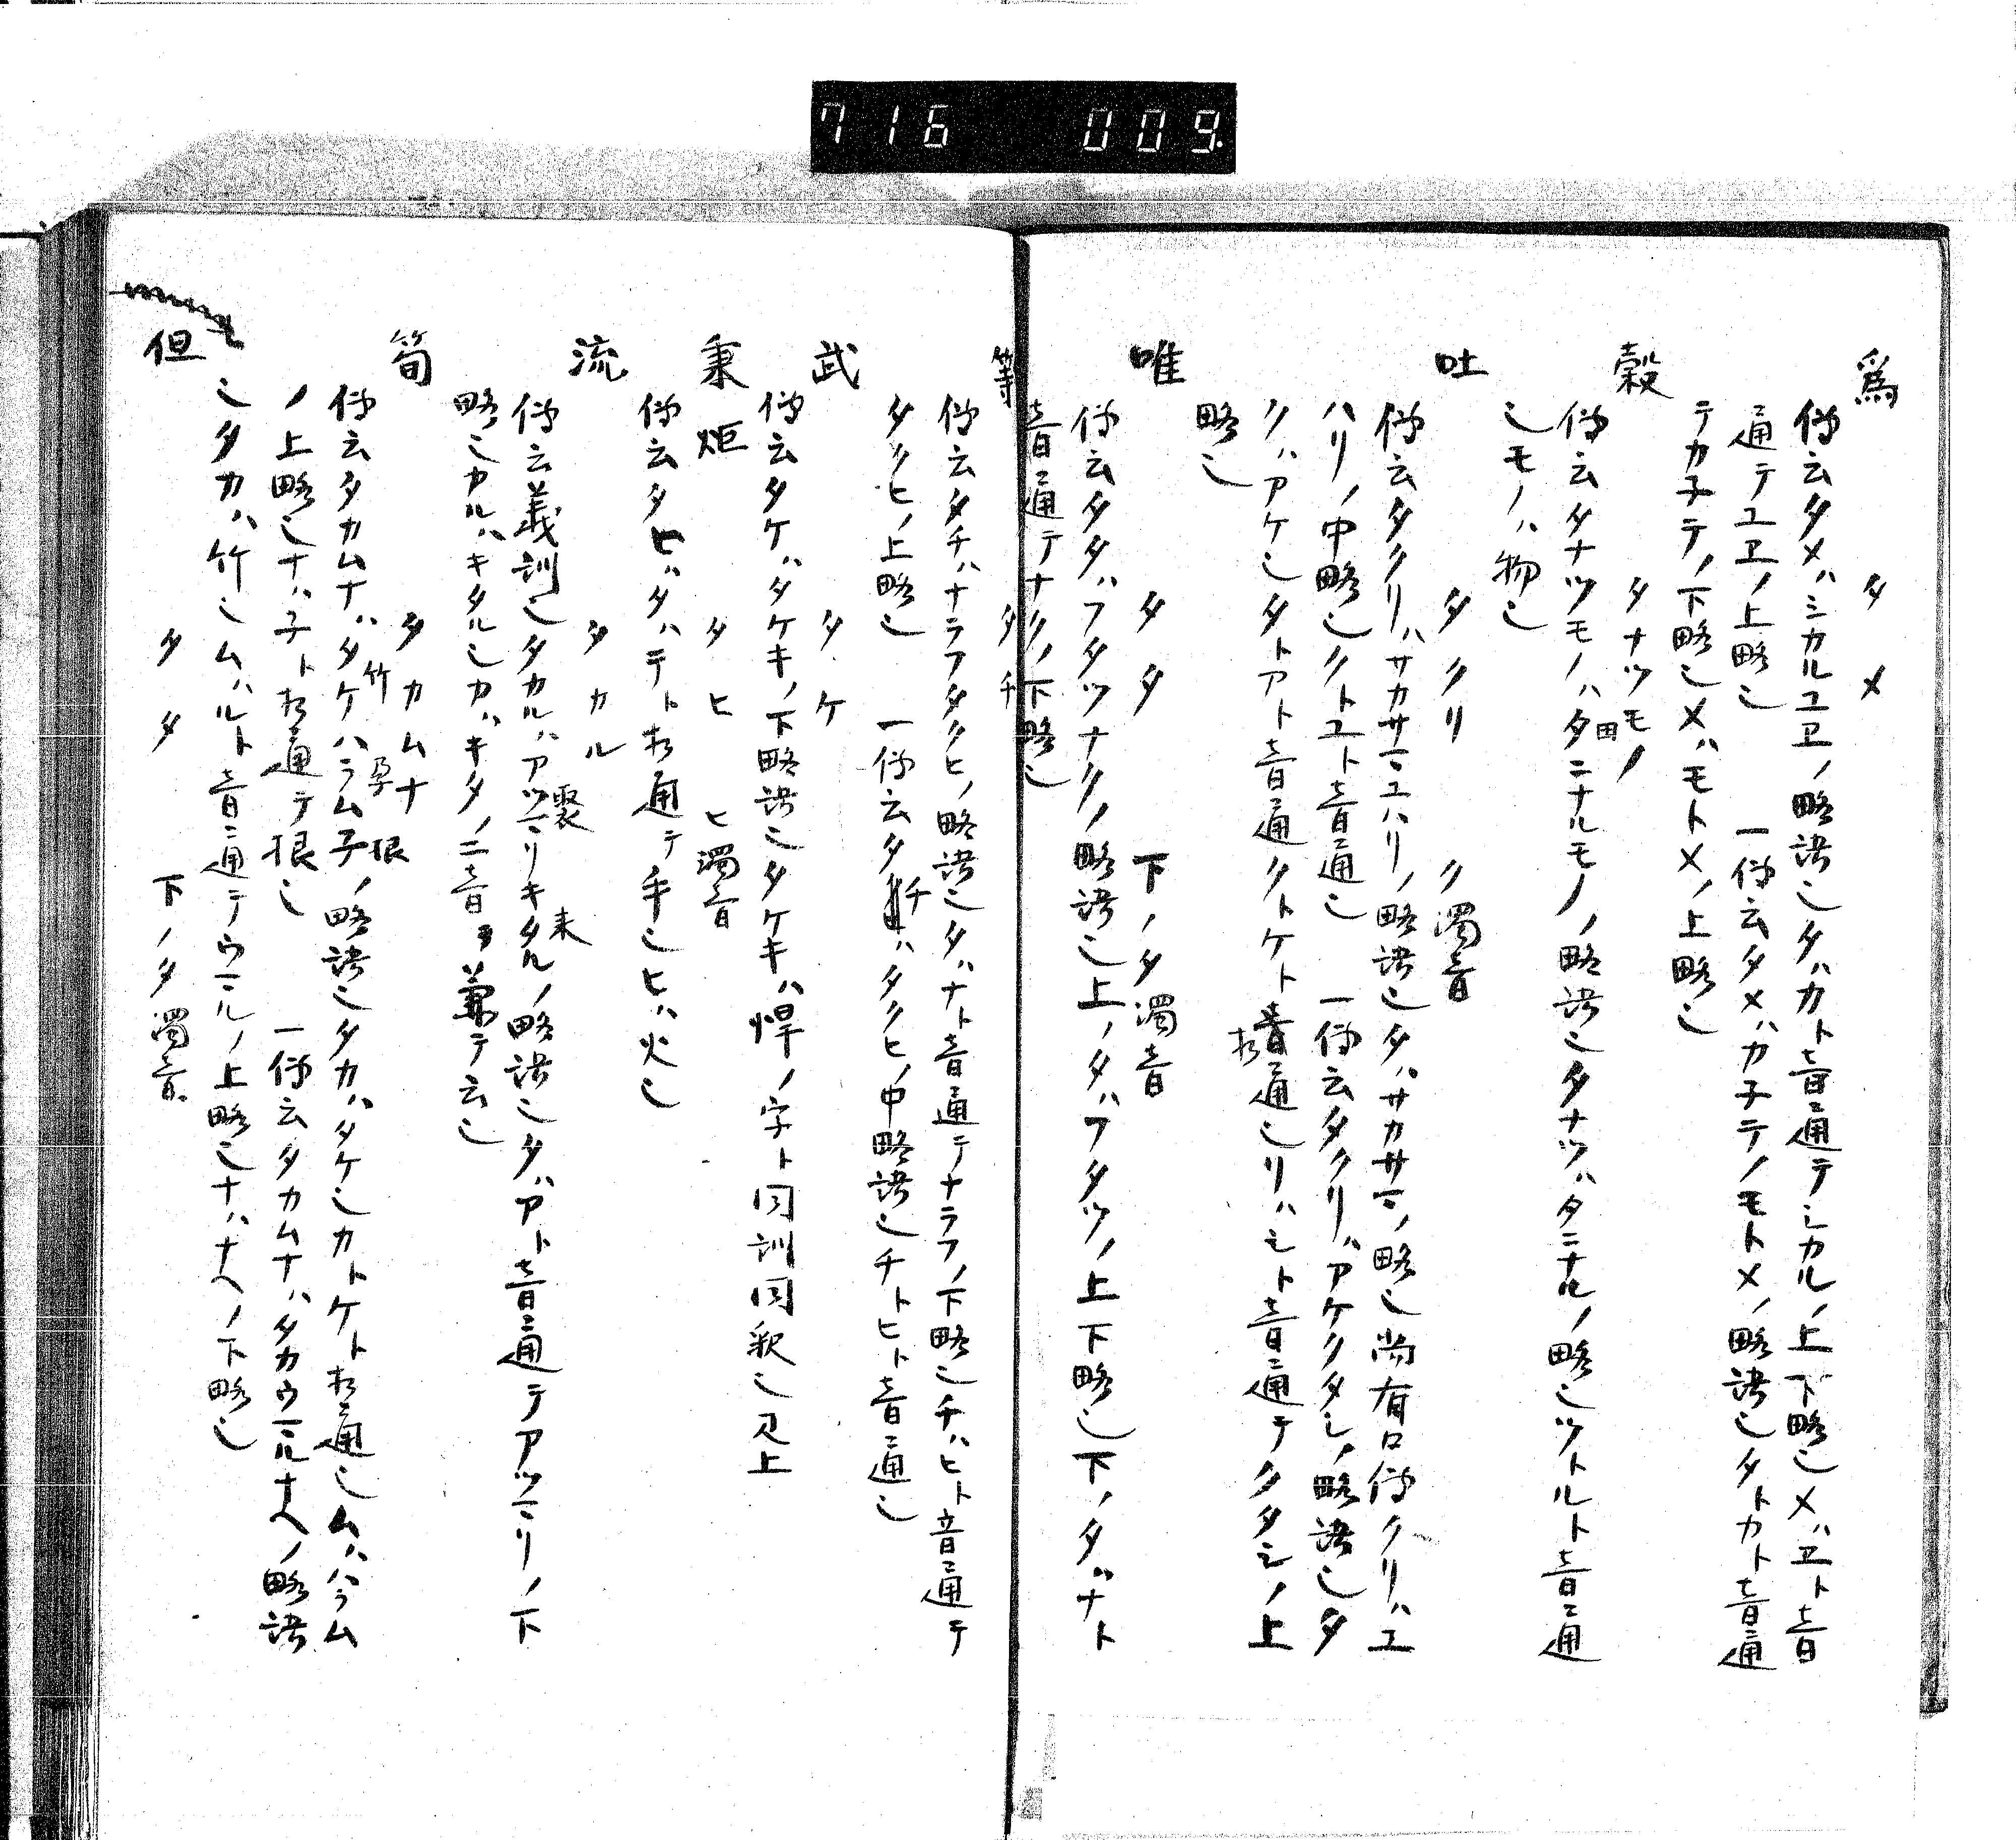 716 009.
爲 タメ
伊云タメハシカルユヱノ略語也タハカト音通テシカルノ上下略也メハヱト音
通テユヱノ上略也 一伊云タメハカ子テノモトメノ略語也タトカト音通
テカ子テノ下略也メハモトメノ上略也
穀 タナツモノ
伊云タナツモノハ田ニナルモノノ略語也タナツハタニナルノ略也ツトルト音通
也モノハ物也
吐 タクリ ク濁音
伊云タクリハサカサマユハリノ略語也タハサカサマノ略也尚有口伊クリハユ
ハリノ中略也クトユト音通也 一伊云タクリハアケクタシノ略語也タ
クハアケ也タトアト音通クトケト音通也リハシト音通テクタシノ上
略也
唯 タタ 下ノタ濁音
伊云タタハフタツナクノ略語也上ノタハフタツノ上下略也下ノタハナト
音通テナクノ下略也
等 タチ
伊云タチハナラフタクヒノ略語也タハナト音通テナラフノ下略也チハヒト音通テ
タクヒノ上略也 一伊云タチハタクヒノ中略語也チトヒト音通也
武 タケ
伊云タケハタケキノ下略語也タケキハ悍ノ字ト同訓同釈也见上
秉炬 タヒ ヒ濁音
伊云タヒハタハテト相通テ手也ヒハ火也
流 タカル
伊云義訓也タカルハアツマリキタルノ略語也タハアト音通テアツマリノ下
略也カルハキタル也カハキタノ二音ヲ兼テ云也
聚 来
筍 タカムナ
伊云タカムナハタケハラム子ノ略語也タカハタケ也カトケト相通也ムハハラム
竹 孕 根
ノ上略也ナハ子ト相通テ根也 一伊云タカムナハタカウマルナヘノ略語
也タカハ竹也ムハルト音通テウマルノ上略也ナハナヘノ下略也
但 タタ 下ノタ濁音